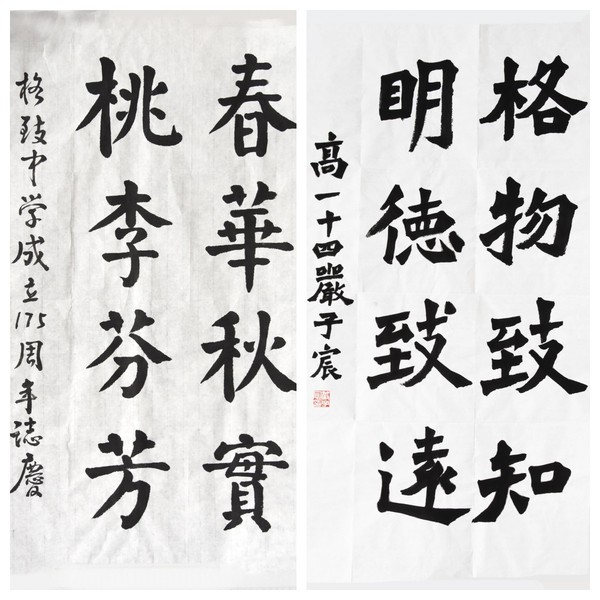 春華秋實
桃李芬芳
格致中学成立175周年誌慶
格物致知
明德致遠
高一十四嚴子宸